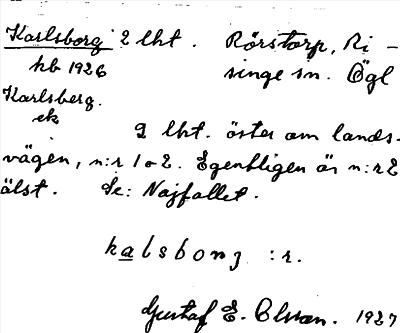 Karlsborg 2 lht. Rörstorp, Ri-
hb 1926 singe sn. Ögl
Karlsberg.
ek
2 lht. öster om lands-
vägen, n:r 1 o 2. Egentligen är n:r 2
älst. Se: Najfallet.
kalsborg :r.
Gustaf E. Olsson. 1927